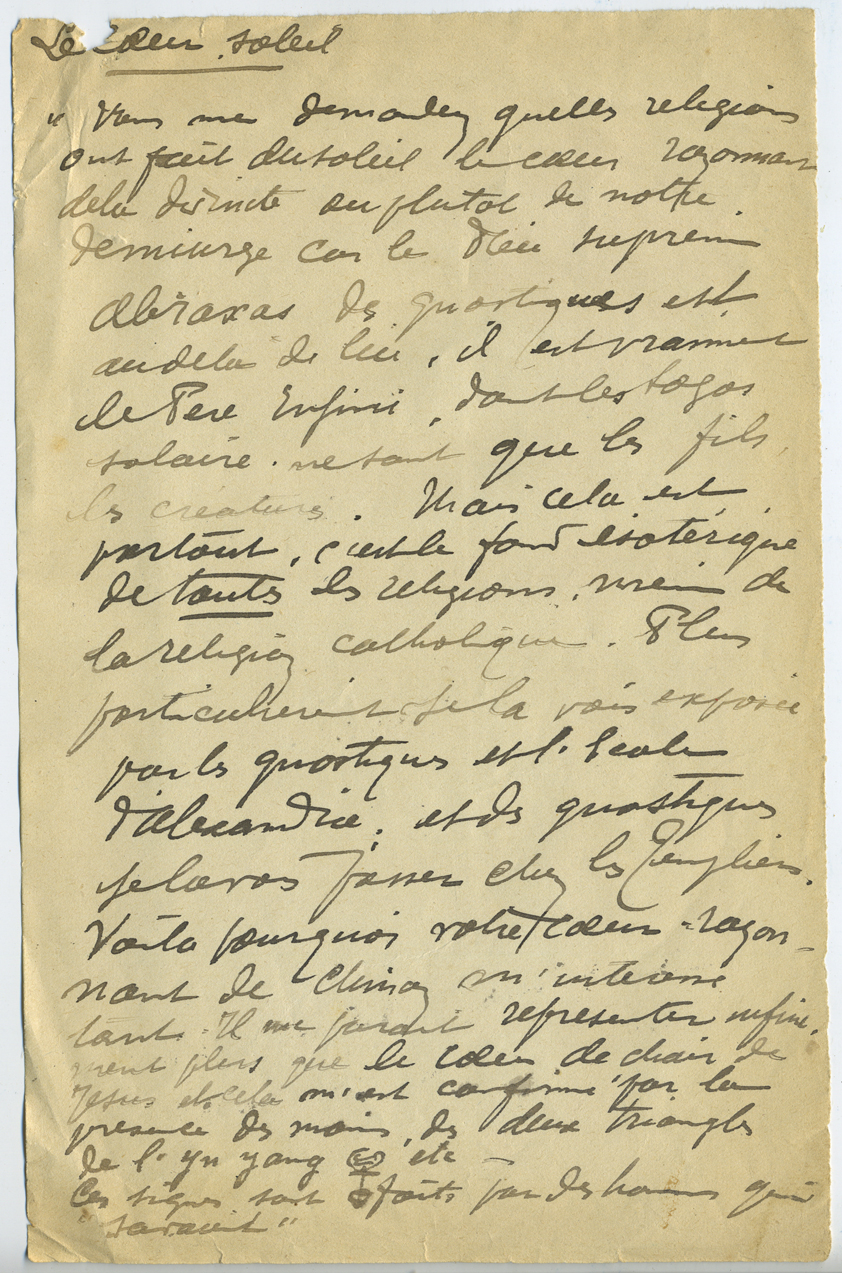 Le Cœur soleil
" Vous me demandez quelles religions
ont fait du soleil le cœur rayonnant
de la divinité ou plutot de notre
demiurge car le Dieu supreme
Abraxas des gnostiques est
au dela de lui, il est vraiment
le Pere Infini, dont les logos
solaire ne sont que les fils,
les creatures. Mais cela est
partout, c'est le fond ésotérique
de toutes les religions, meme de
la religion catholique. Plus
particulierement je la vois exposée
par les gnostiques et l'Ecole
d'Alexandrie, et des gnostiques
je la vois passer chez les Templiers.
Voila pourquoi votre cœur rayon-
nant de Chinon m'interesse
tant. Il me parait representer infini-
ment plus que le cœur de chair de
Jesus et cela m'est confirmé par la
presence des mains, des deux triangles
de l'yn yang etc
Ces signes sont faits par des hommes qui
"savaient"